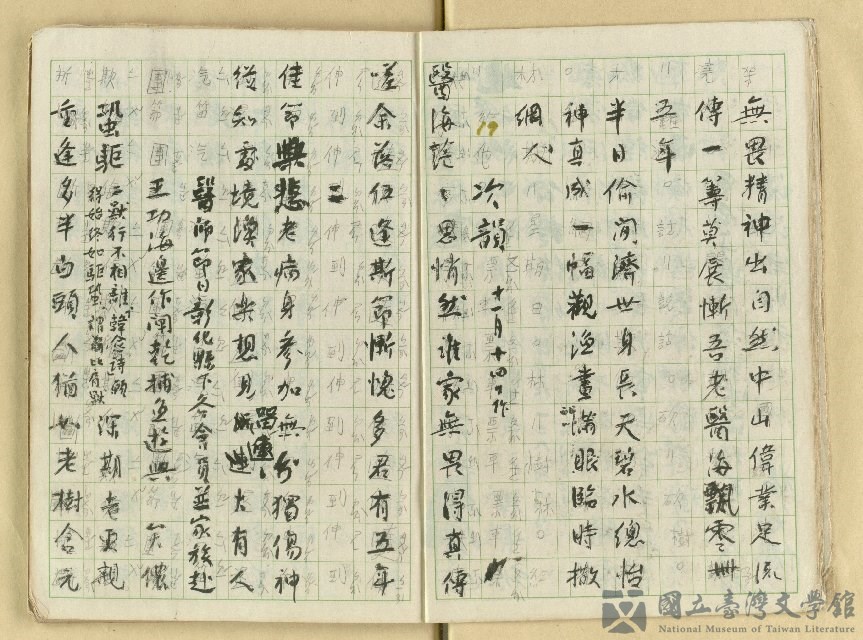 無畏精神出自然中山偉業足流
傳一籌莫展慚吾老醫海飄零卅
五年
半日偷閒濟世身長天碧水總怡
神真成一幅觀漁畫滿眼臨時撒
網人
19 次韻 十一月十四日作
醫海茫〻思悄然誰家無畏得真傳
嗟余落伍逢斯節慚愧多君有五年
二
佳節興悲老病身參加無分獨傷神
從知處境漁家樂想見留連大有人
醫師節日彰化縣下各會員並家族赴
王功海邊作闈乾捕魚遊興
蛩駏 二獸行不相離 韓愈詩 願
得始終如駏蛩 謂此有獸 深期老更親
重逢多半白頭人猶如老樹含元
國立臺灣文學館
National Museum of Taiwan Literature